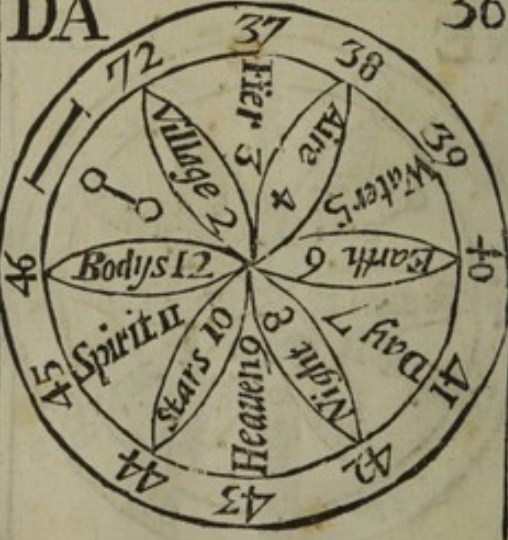 DA
36
72
37
38
39
40
41
42
43
44
45
46
Village 2
Fier 3
Aire 4
Water 5
Earth 6
Day 7
Night 8
Heauen 9
Stars 10
Spirit 11
Bodys 12